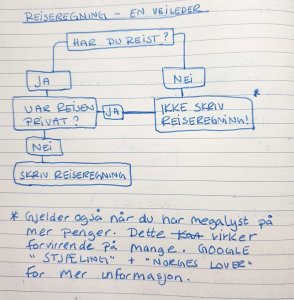 REISEREGNING - EN VEILEDER
HAR DU REIST?
JA
NEI
VAR REISEN
PRIVAT?
JA
IKKE SKRIV
REISEREGNING!
*
NEI
SKRIV REISEREGNING
* Gjelder også når du har megalyst på
mer penger. Dette virker
forvirrende på mange. GOOGLE
"STJÆLING" + "NORGES LOVER"
for mer informasjon.